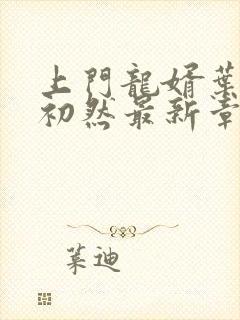 上門龍婿葉
初然最新章
葉迪